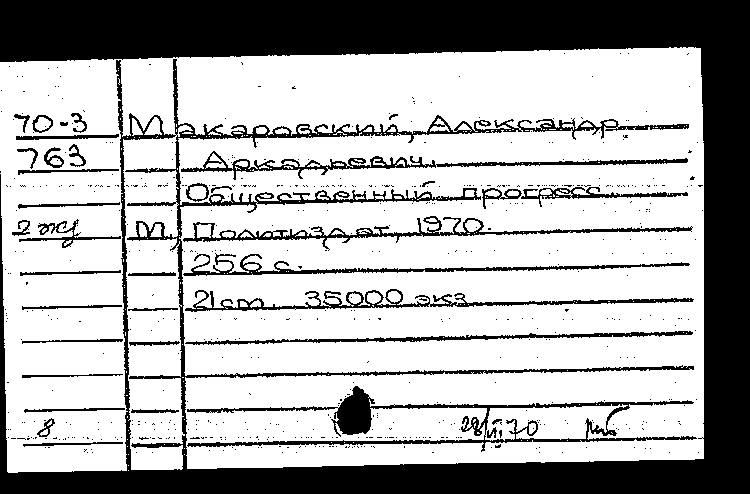 70-3 Макаровский, Александр
763 Аркадьевич.
Общественный прогресс
2 экз М, Политиздат, 1970.
256 с.
21 cm. 35000 экз
8 28/VII 70